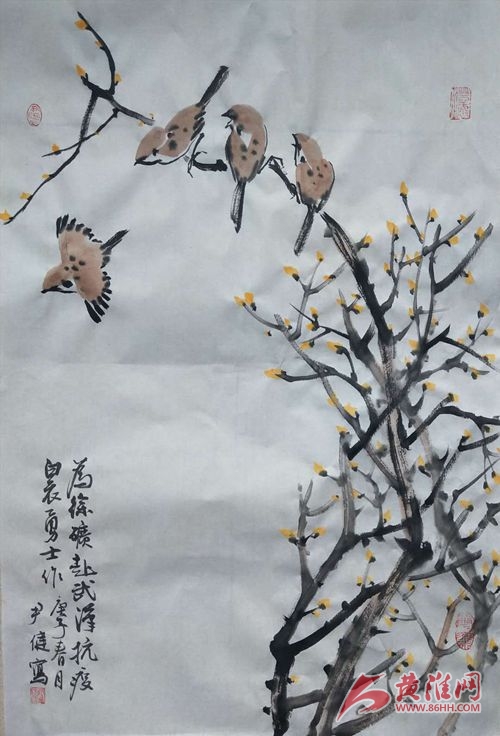 為徐礦赴武漢抗疫
白衣勇士作 庚子春月
尹健寫
黄淮网
WWW.86HH.COM